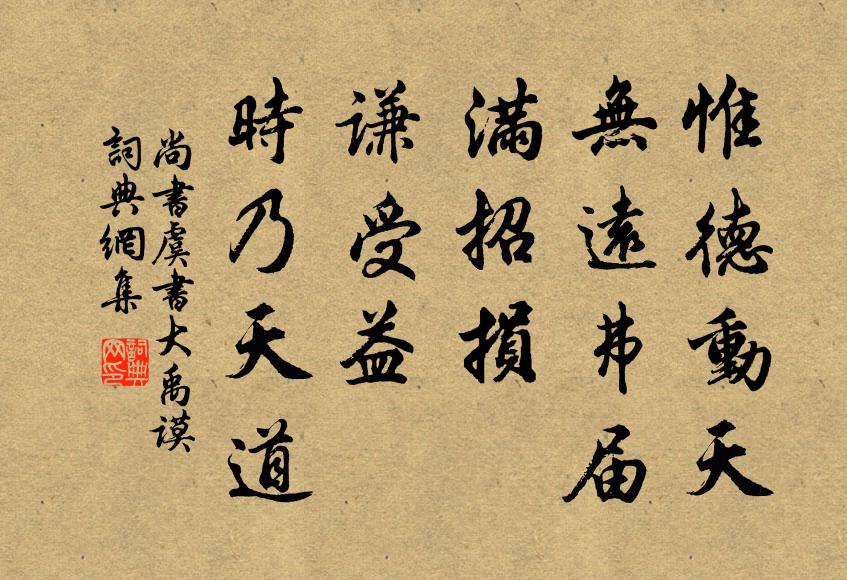 惟德動天
無遠弗届
滿招損
謙受益
時乃天道
尚書虞書大禹謨
詞典網集
詞典
网印